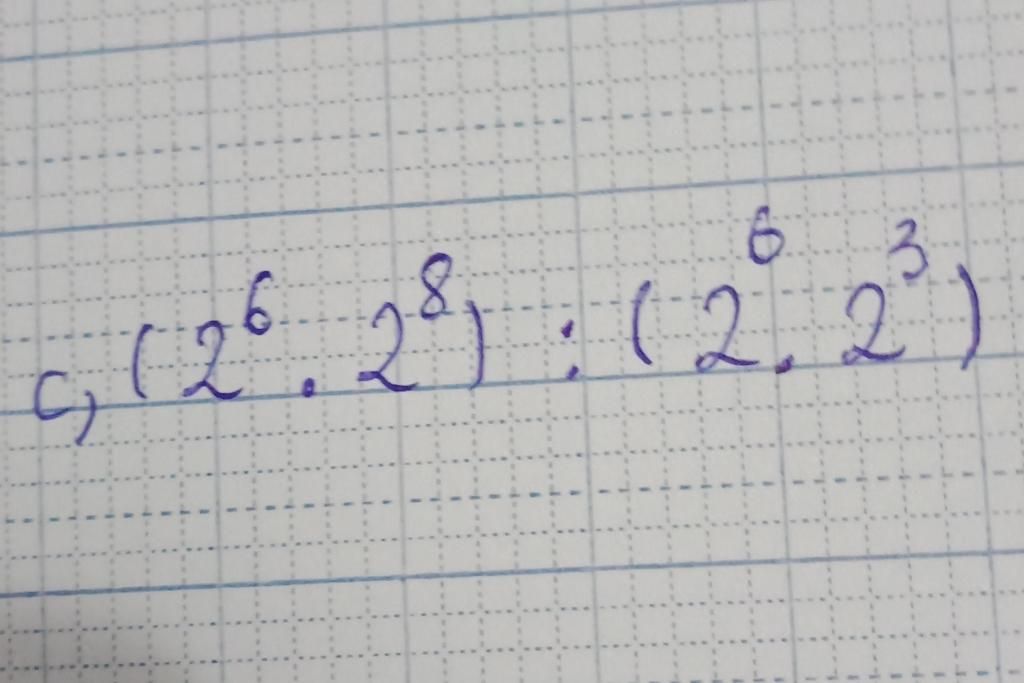 c, (2⁶ . 2⁸) : (2⁶ . 2³)